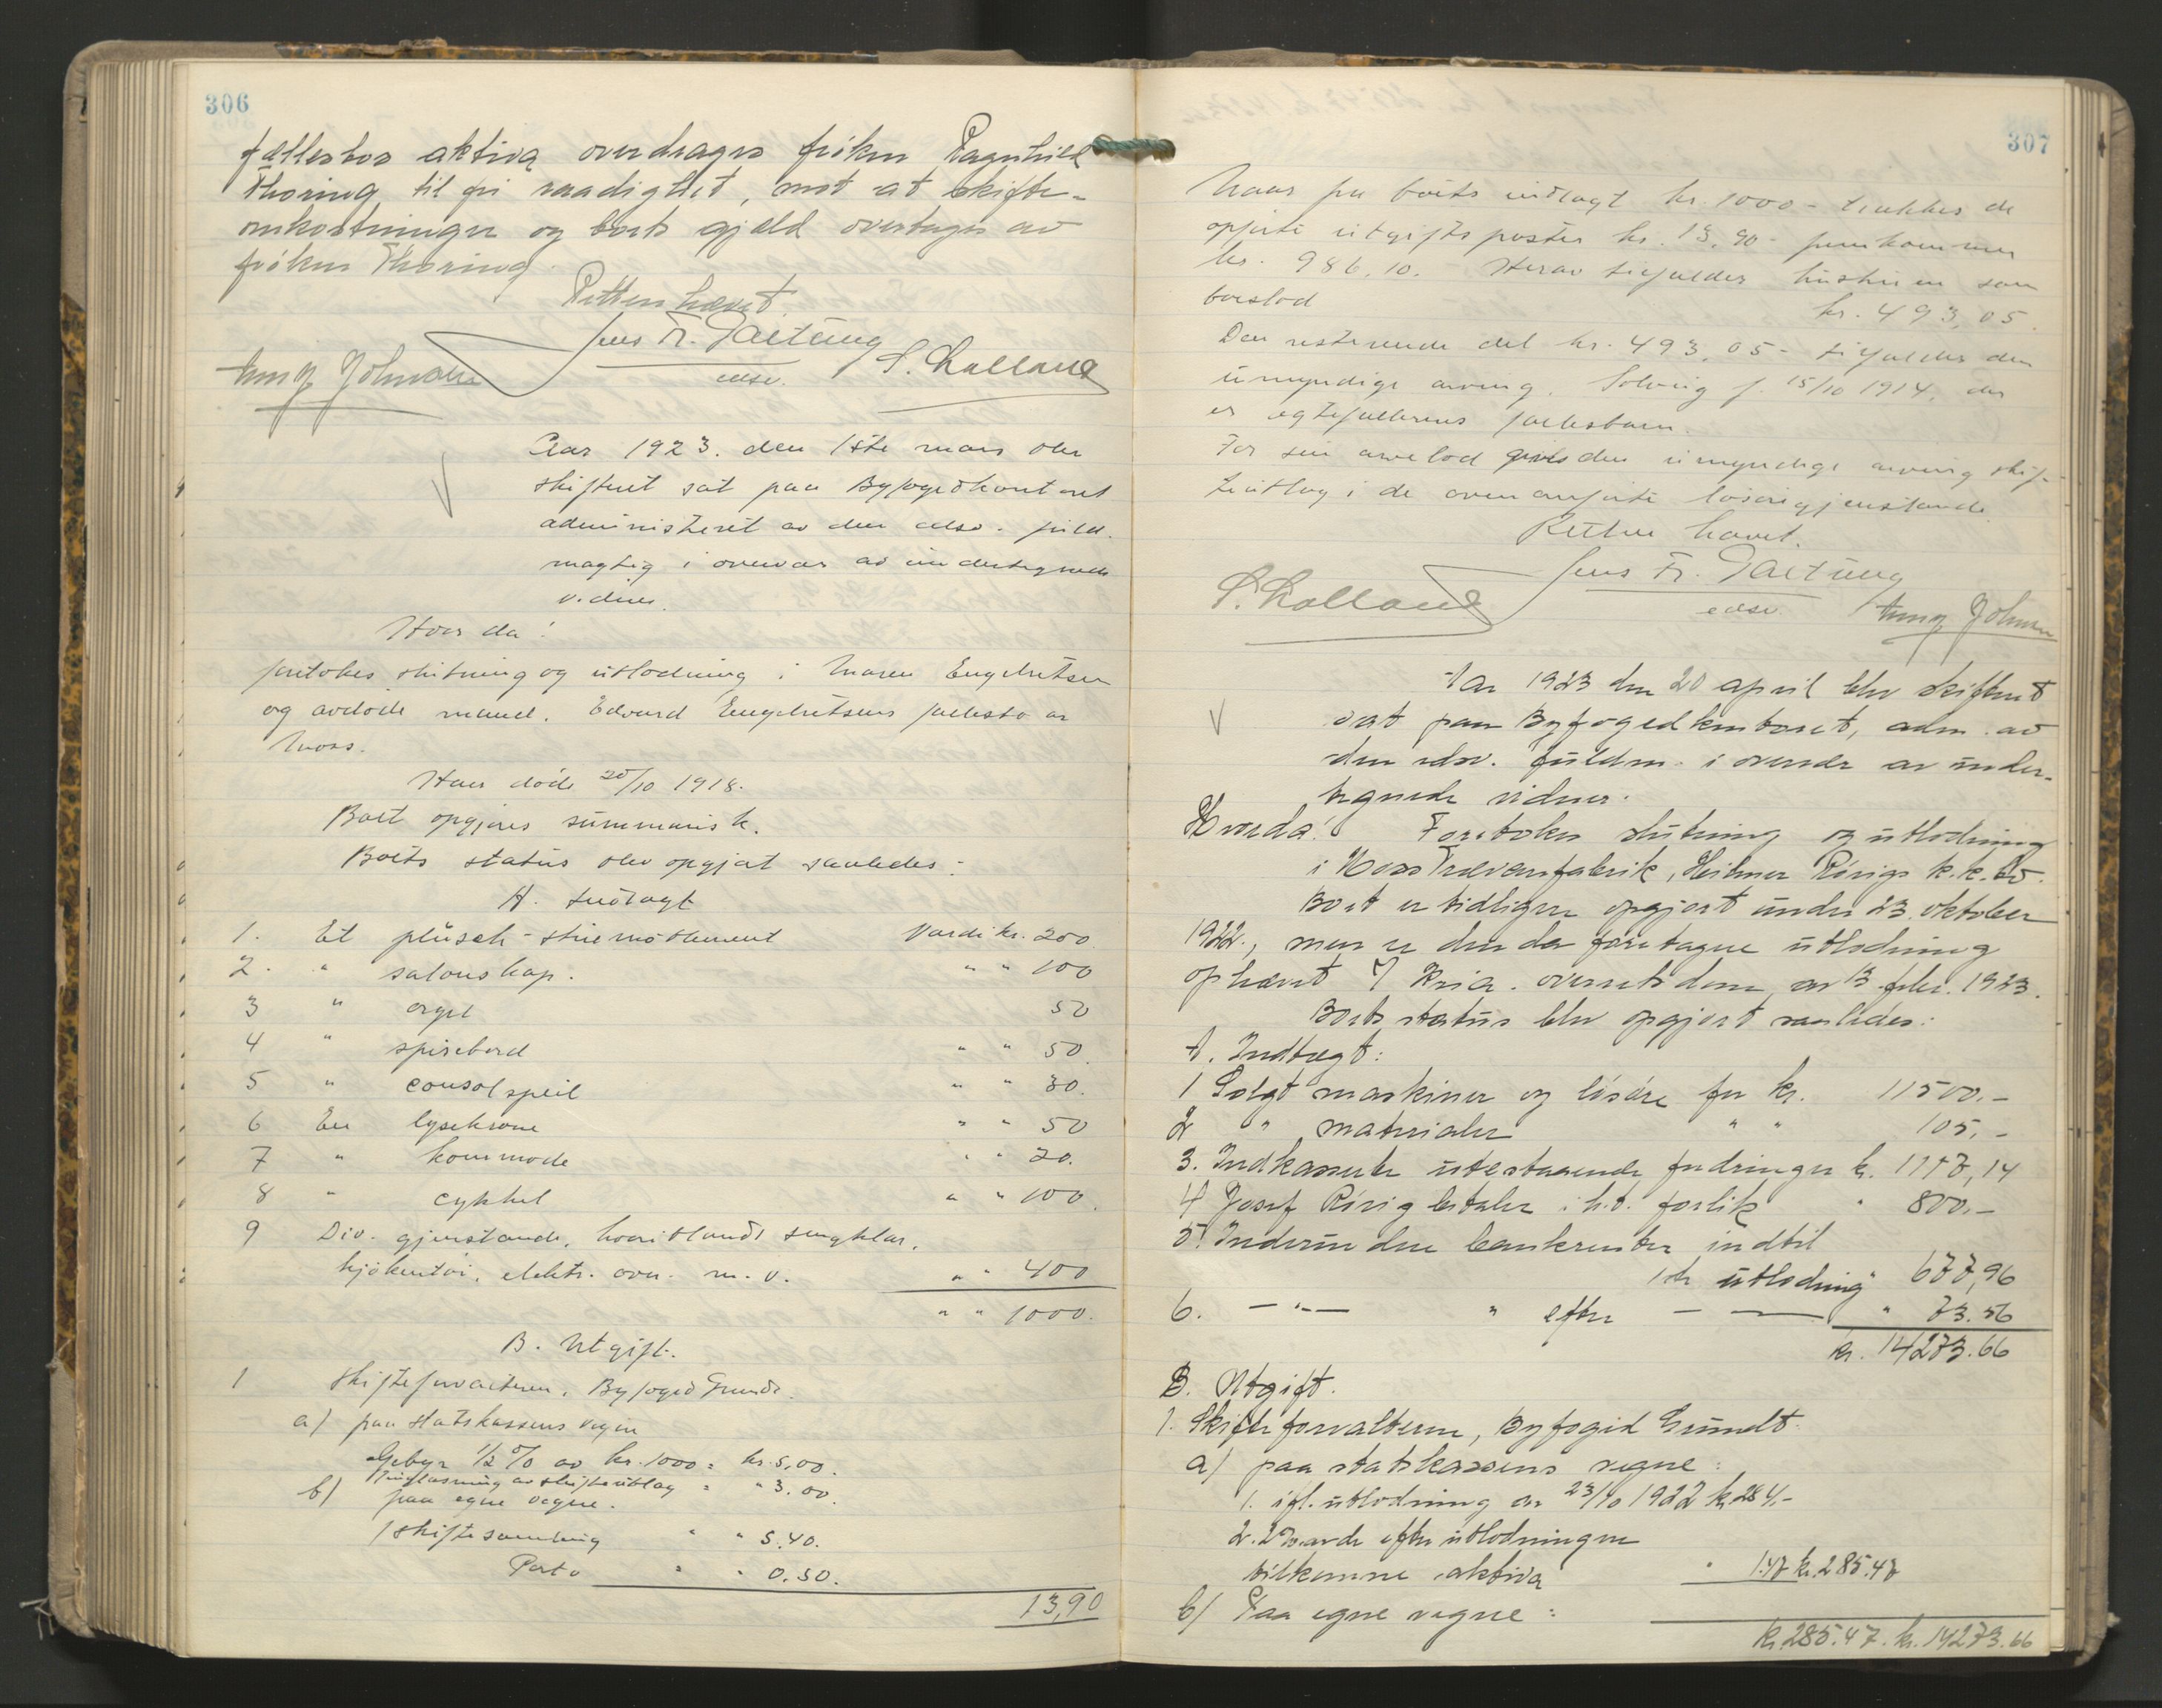 306
fællesbos aktiva overdrages frøken Ragnhild
Thoring til fri raadighet, mot at skifte-
omkostninger og boets gjæld overtages av
frøken Thoring.
Retten hævet.
Jens Fr.
edsv.
Johnsen
S. Lolland
Aar 1923. den 1ste mars blev
skifteret sat paa Byfogedkontoret
administreret av den edsv. fuld-
mægtig i overvær av undertegnede
vidner.
Hvorda!
foretokes slutning og utlodning i Maren Engebretsen
og avdøde mand. Edvard Engebretsens fællesbo av
Moss.
Han døde 20/10 1918.
Boet opgjøres summarisk.
Boets status blev opgjort saaledes:
A. Indtægt
1. Et plüsch-stuemøblement Værdi kr. 200.
2. " salonskap. " " 100
3 " orgel 50
4 " spisebord " " 50.
5 " consolspeil " " 30.
6 En lysekrone " " 50
7 " kommode " " 20.
8 " cykkel " " 100.
9 Div. gjenstande, hvoriblandt sengklær,
kjøkentøi, elektr. ovn. m. v. " " 400
" " 1000.
B. Utgift.
1 Skifteforvalteren, Byfoged Grundt.
a) paa statskassens vegne
Gebyr 1/2 % av kr. 1000 = kr. 5,00.
Tinglæsning av skifteutlæg = " 3.00.
b) paa egne vegne.
1 skiftesamling " " 5.40.
Porto " " 0.50.
13,90
307
Naar fra boets indtægt kr. 1000 - trækkes de
opførte utgiftsposter kr. 13,90 - fremkommer
kr. 986,10. Herav tilfalder hustruen som
boeslod kr. 493,05.
Den resterende del kr. 493,05 - tilfalder den
umyndige arving, Solveig f. 15/10 1914, der
er egtefællernes fællesbarn.
For sin arvelod gives den umyndige arving skif-
teutlæg i de ovenanførte løsøregjenstande.
Retten hævet.
Jens Fr.
S. Lolland
edsv.
Johnsen
Aar 1923 den 20 april blev skifteret
sat paa Byfogedkontoret, adm. av
den edsv. fuldm. i overvær av under-
tegnede vidner.
Hvorda! Foretokes slutning og utlodning
i Moss Trævarefabrik, Hilmer Rörigs k.k. bo.
Boet er tidligere opgjort under 23 oktober
1922, men er den da foretagne utlodning
ophævet v/ Kria. overretsdom av 13 febr. 1923.
Boets status blev opgjort saaledes:
A. Indtægt:
1 Solgt maskiner og løsøre for kr. 11500.-
2 " materialer " " 105.-
3. Indkasserte utestaaende fordringer kr. 1117,14
4 Josef Rörig betaler i h.t. forlik " 800.-
5. Indvundne bankrenter indtil
1ste utlodning " 677,96
6. - " - " efter - — " 73.56
kr. 14273.66
B. Utgift.
1. Skifteforvalteren, Byfoged Grundt:
a) paa statskassens vegne:
1. ifl. utlodning av 23/10 1922 kr. 284.-
2. 2% av de efter utlodningen
tilkomne aktiva " 1.47 kr. 285.47
b) Paa egne vegne:
kr. 285.47. kr. 14273.66